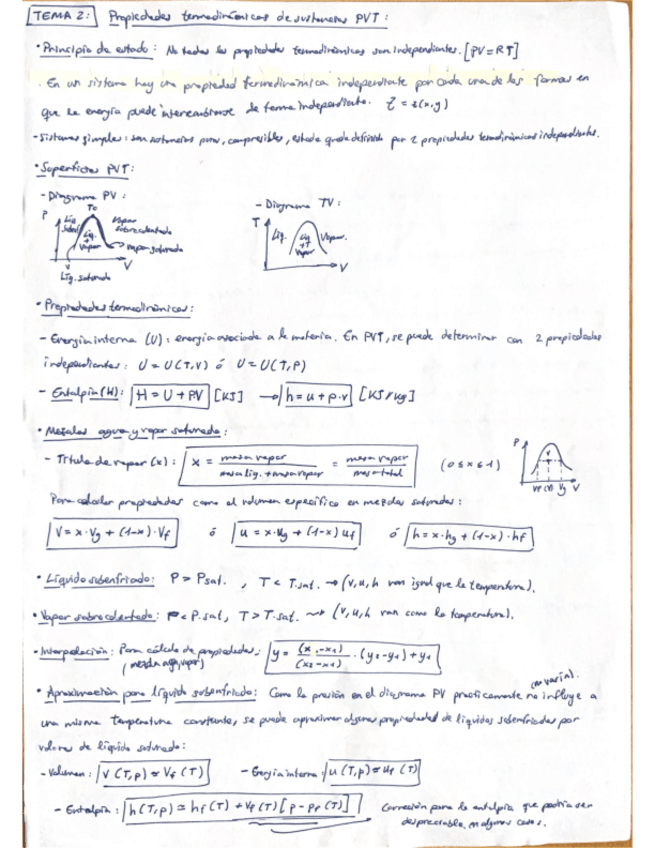 TEMA 2: Propiedades termodinámicas de sustancias PVT:
· Principio de estado: No todas las propiedades termodinámicas son independientes. [PV=RT]
· En un sistema hay una propiedad termodinámica independiente por cada una de las formas en
que la energía puede intercambiarse de forma independiente. z = z(x,y)
- Sistemas simples: son sustancias puras, compresibles, estado queda definido por 2 propiedades termodinámicas independientes.
· Superficies PVT:
- Diagrama PV:
- Diagrama TV:
P
Tc
Líq. Subenf.
Vapor sobrecalentado
Líq. + Vapor
vapor saturado
V
Líq. saturado
T
Líq.
Líq + Vapor
Vapor.
V
· Propiedades termodinámicas:
- Energía interna (U): energía asociada a la materia. En PVT, se puede determinar con 2 propiedades
independientes: U = U(T,V) ó U = U(T,P)
- Entalpía (H): H = U + PV [KJ] → h = u + p·v [KJ/kg]
· Mezclas agua y vapor saturado:
- Título de vapor (x): x = masa vapor / masa líq. + masa vapor = masa vapor / masa total (0 ≤ x ≤ 1)
P
V
Para calcular propiedades como el volumen específico en mezclas saturadas:
V = x·Vg + (1-x)·Vf ó u = x·ug + (1-x) uf ó h = x·hg + (1-x)·hf
· Líquido subenfriado: P > Psat. , T < T.sat. → (v,u,h van igual que la temperatura).
· Vapor sobrecalentado: P < P.sat, T > T.sat. → (v,u,h van como la temperatura).
· Interpolación: Para cálculo de propiedades: y = (x - x1) / (x2 - x1) · (y2 - y1) + y1
(mezcla agua, vapor)
(no varía).
· Aproximación para líquido subenfriado: Como la presión en el diagrama PV prácticamente no influye a
una misma temperatura constante, se puede aproximar algunas propiedades de líquidos subenfriados por
valores de líquido saturado:
- Volumen: v (T,p) ≃ Vf (T) - Energía interna: u (T,p) ≃ uf (T)
- Entalpía: h (T,p) ≃ hf (T) + Vf (T) [p - pf (T)] Corrección para la entalpía que podría ser
despreciable, en algunos casos.